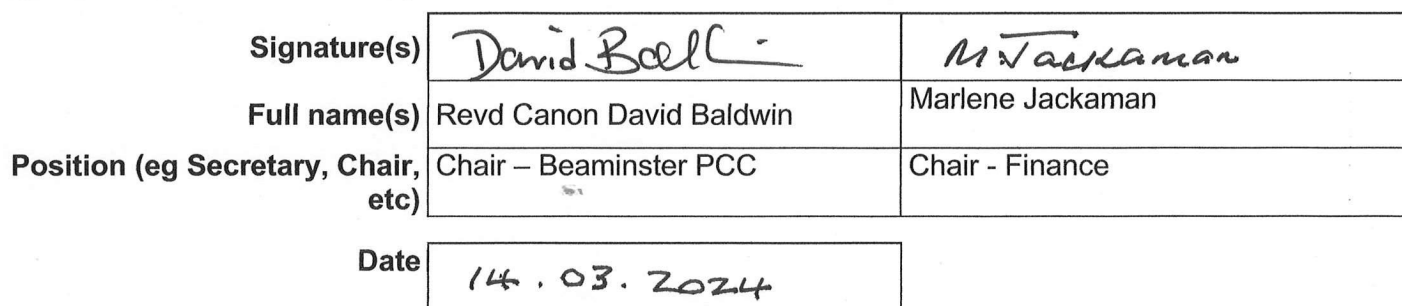 Signature(s) David Bal M Jackaman
Full name(s) Revd Canon David Baldwin Marlene Jackaman
Position (eg Secretary, Chair, Chair – Beaminster PCC Chair - Finance
etc)
Date 14.03.2024